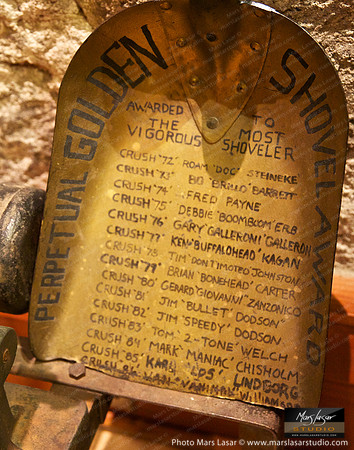 PERPETUAL GOLDEN SHOVEL AWARD
AWARDED TO
THE MOST
VIGOROUS SHOVELER
CRUSH '72' ROAM "DOC" STEINEKE
CRUSH '73' BO 'BRILLO' BARRETT
CRUSH '74' FRED PAYNE
CRUSH '75' DEBBIE 'BOOMBOOM' ERB
CRUSH 76' GARY 'GALLERONI' GALLERON
CRUSH '77' KEN 'BUFFALOHEAD' KAGAN
CRUSH '78 TIM 'DON'T IMOTEO' JOHNSTON
CRUSH '79' BRIAN 'BONEHEAD' CARTER
CRUSH '80' GERARD 'GIOVANNI' ZANZONICO
CRUSH '81' JIM 'BULLET' DODSON
CRUSH '82' JIM 'SPEEDY' DODSON
CRUSH '83' TOM '2-TONE' WELCH
CRUSH '84' MARK 'MANIAC' CHISHOLM
CRUSH '85' KARL LINDBORG
CRUSH WILLIAMSON
Mars Lasar
STUDIO
www.marslasarstudio.com
Photo Mars Lasar © www.marslasarstudio.com